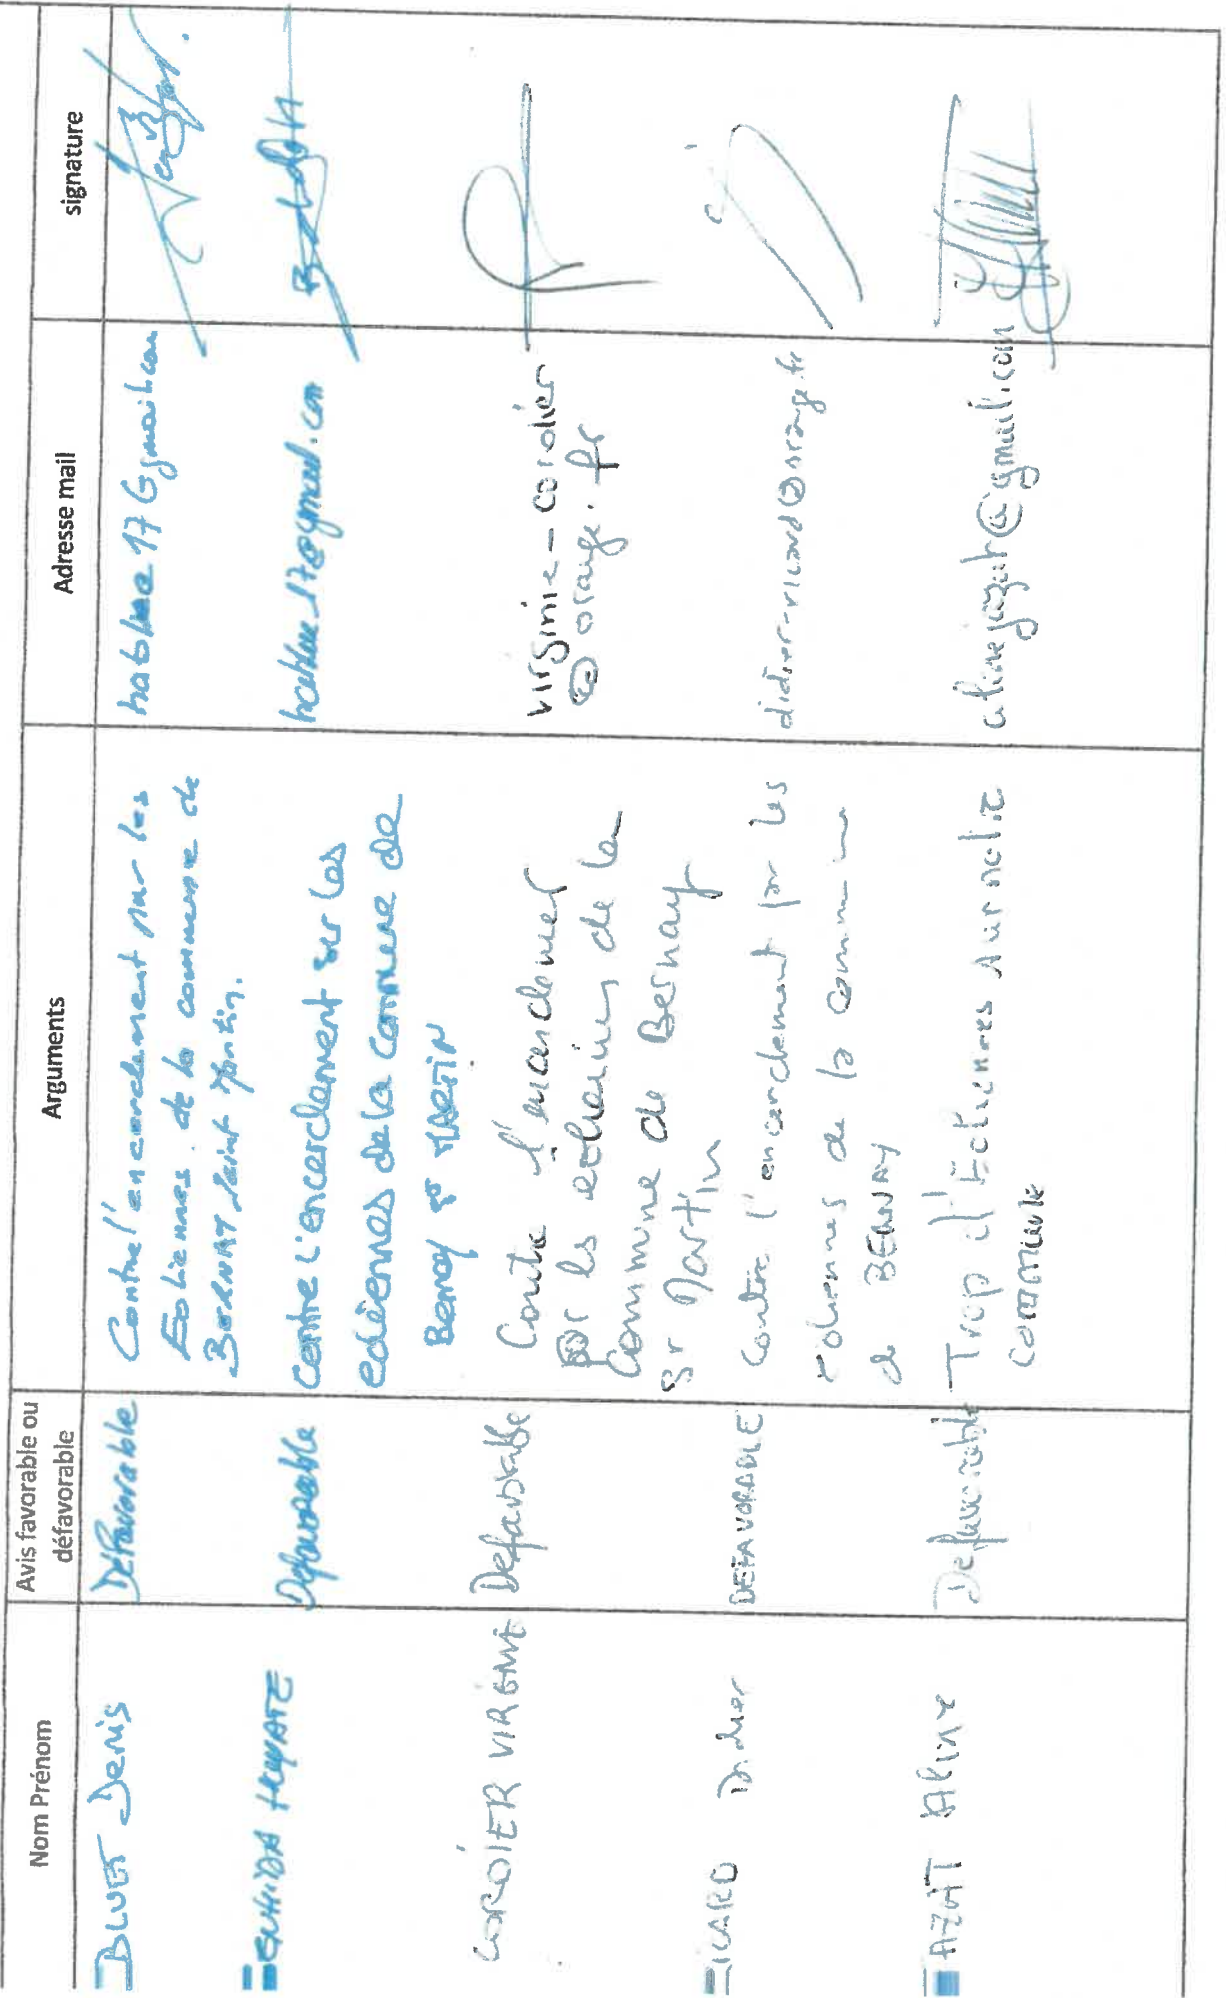 Nom Prénom
Avis favorable ou
défavorable
Arguments
Adresse mail
signature
BLUET Denis
Défavorable
Contre l'encerclement par les
Eoliennes de la commune de
BERNAY Saint Martin.
Defavorable
Contre l'encerclement sur les
eoliennes de la commune de
Bernay st MARTIN
CORDIER VIRGINIE
Defavorable
Contre l'encercler
par les eoliennes de la
Commune de Bernay
St Martin
virginie-cordier
@orange.fr
ICARD Didier
DEFAVORABLE
Contre l'encerclement par les
eoliennes de la commune
de BERNAY
didier-ricard@orange.fr
AZAT Aline
Defavorable
Trop d'Eoliennes sur notre
commune
alinejazat@gmail.com